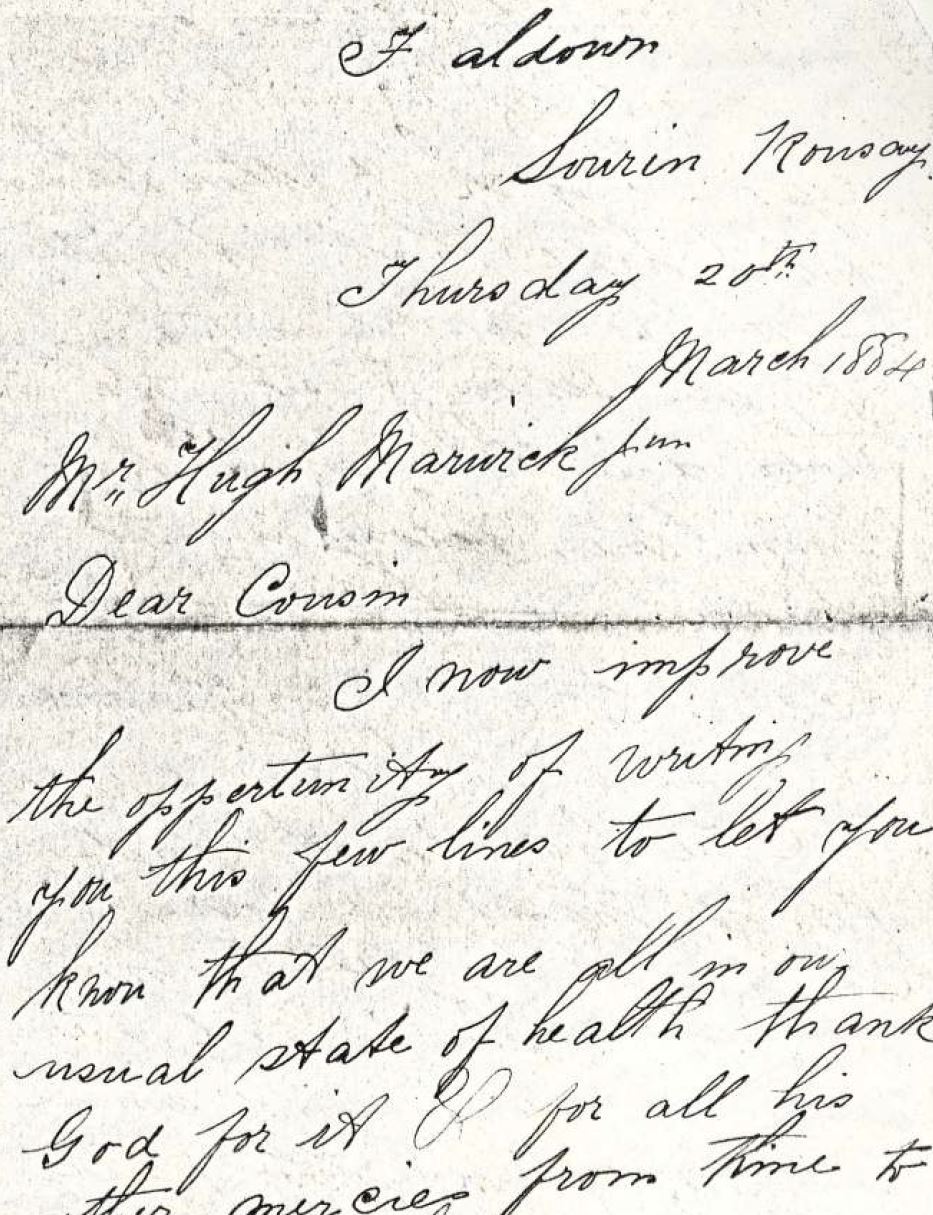 Faldown
Sourin Rousay.
Thursday 20th
March 1884
Mr. Hugh Marwick jun
Dear Cousin
I now improve
the oppertunity of writing
you this few lines to let you
know that we are all in our
usual state of health thank
God for it & for all his
other mercies from time to